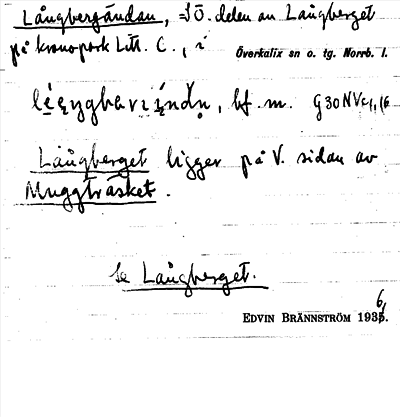 Långbergändan, = SÖ. delen av Långberget
på kronopark Litt. C., i Överkalix sn o. tg. Norrb. l.
bf. m.
Långberget ligger på V. sidan av
Muggträsket.
Se Långberget.
EDVIN BRÄNNSTRÖM 1936.